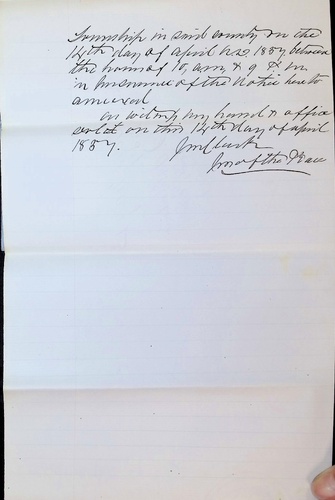 Township in said county on the
14th day of april 1857 between
the hours of 10 am & 9 P m
in pursuance of the Notice hereto
annexed
on witness my hand & office
on this 14th day of april
1857. Jm Clark
Jus of the Peace